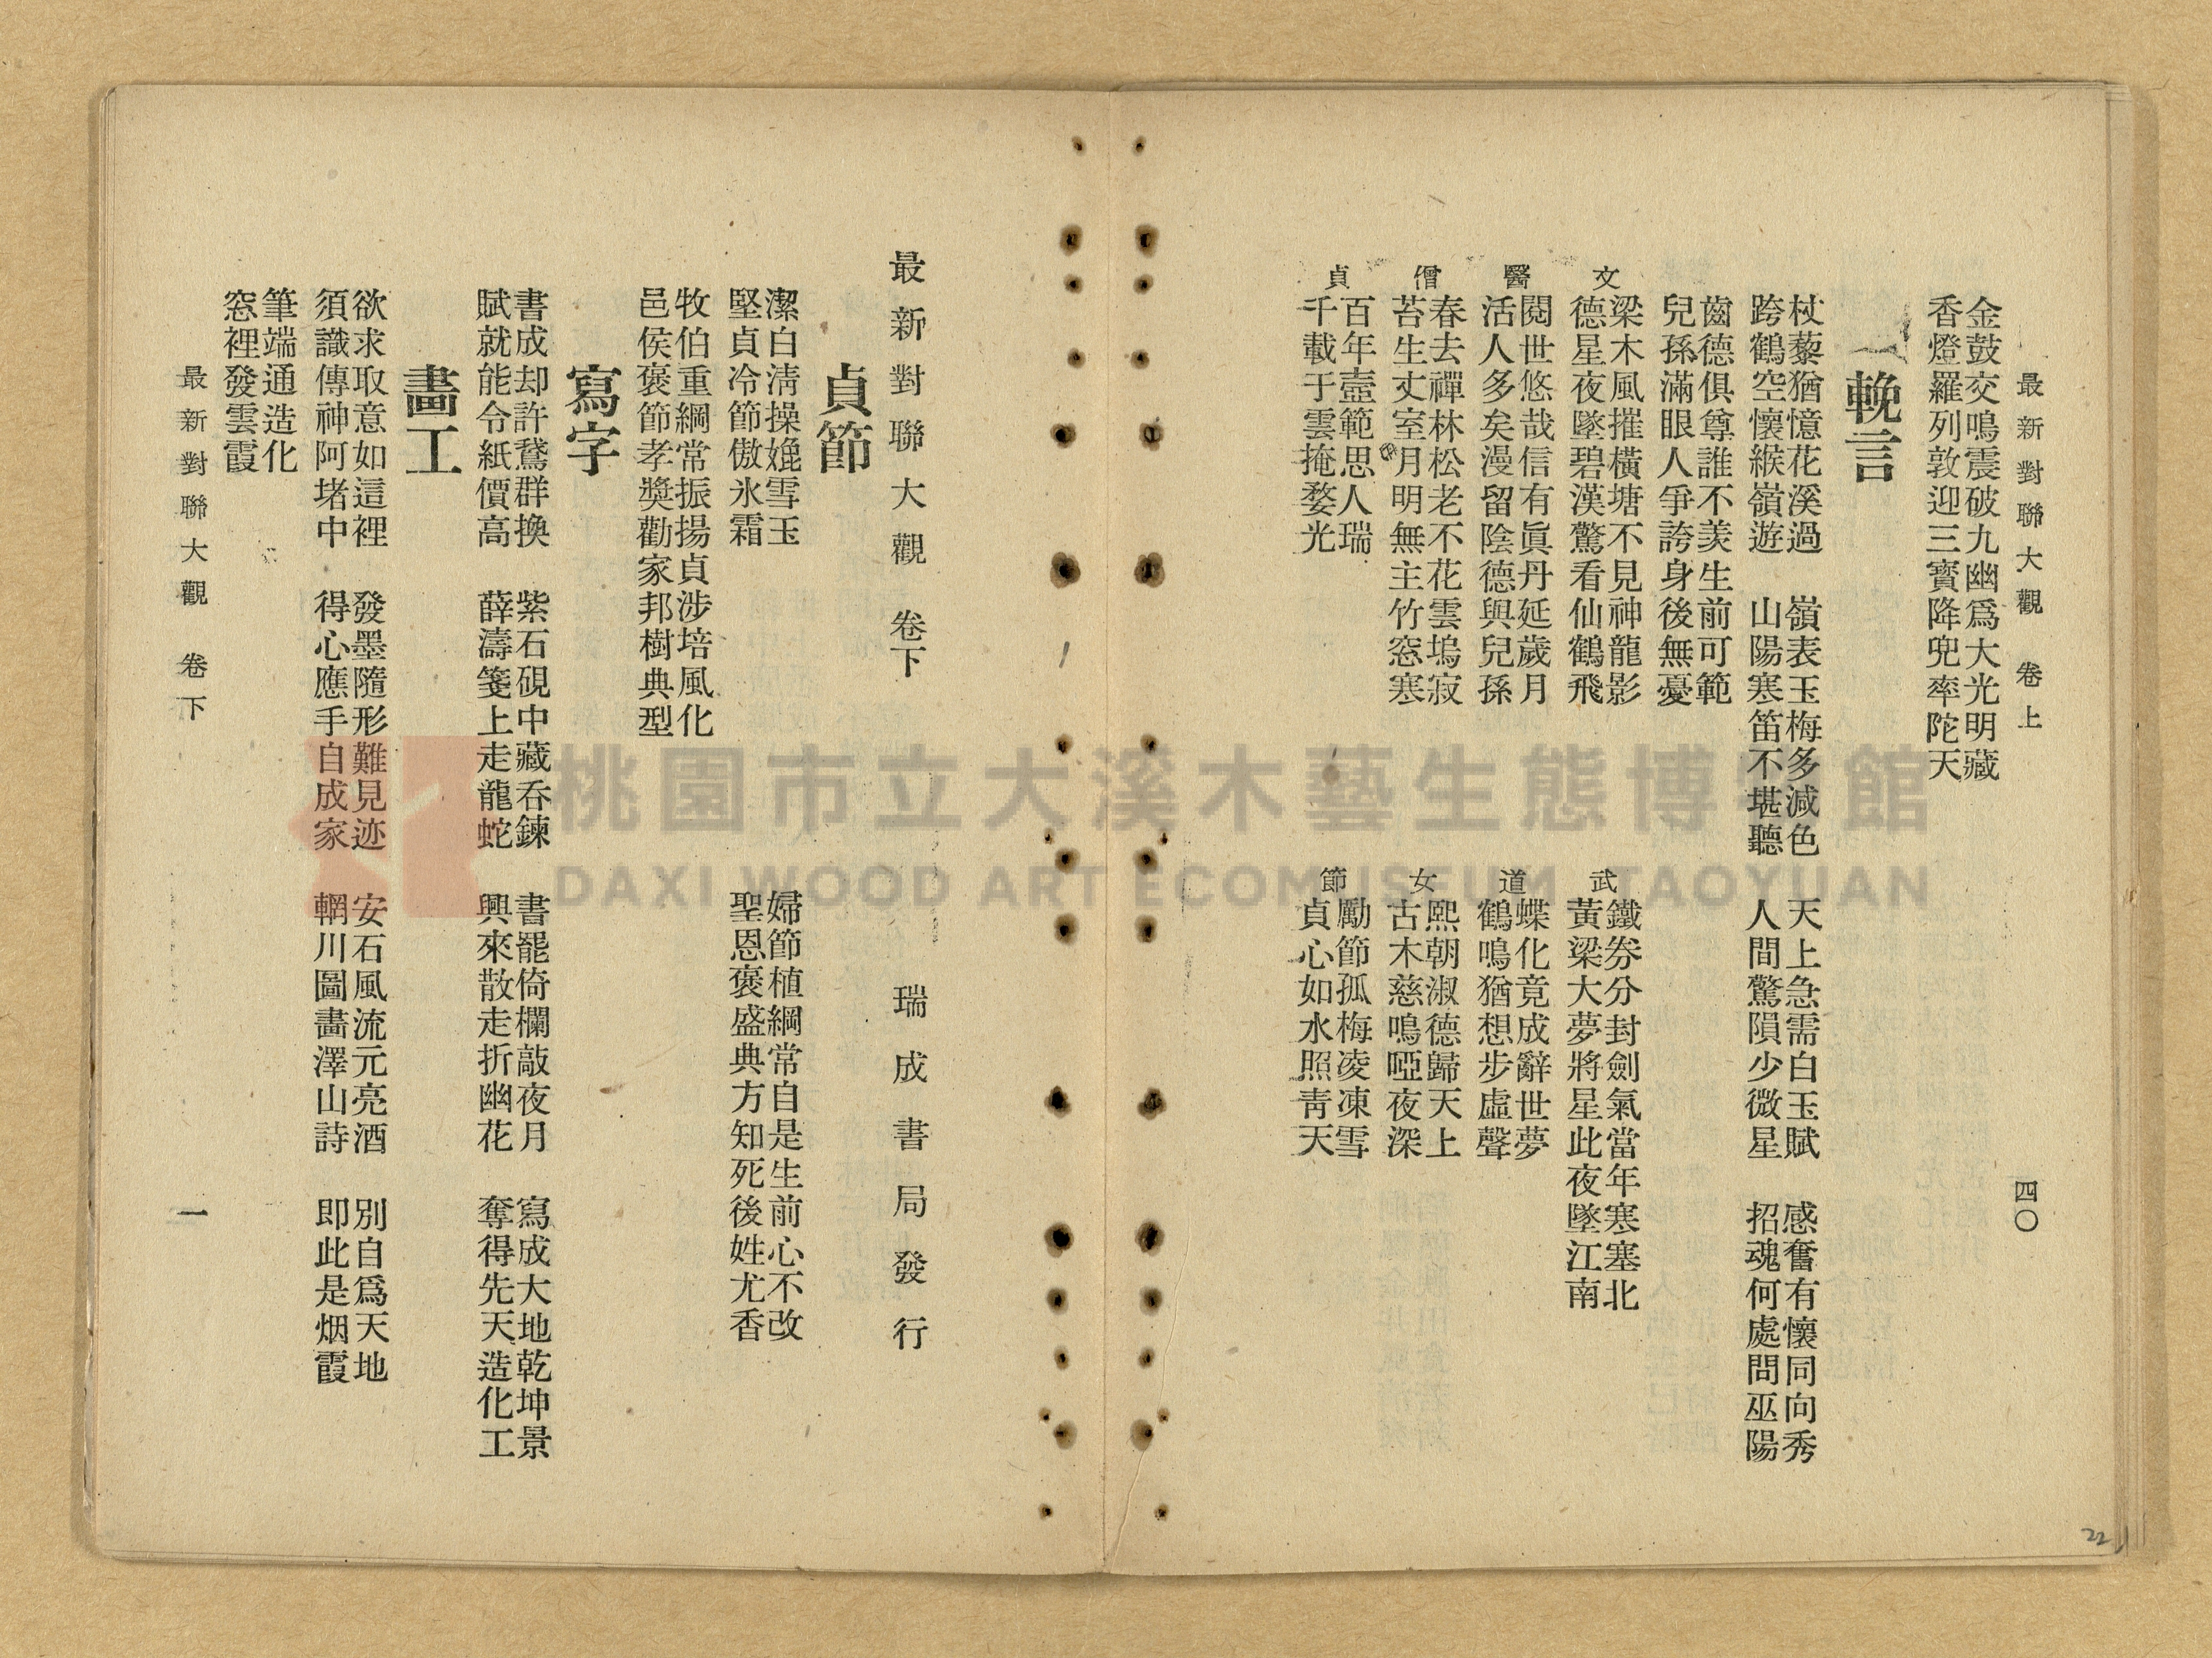 最新對聯大觀　卷上　四〇
金鼓交鳴震破九幽爲大光明藏
香燈羅列敦迎三寳降兜率陀天
輓言
杖藜猶憶花溪過　嶺表玉梅多減色　天上急需白玉賦　感奮有懷同向秀
跨鶴空懷緱嶺遊　山陽寒笛不堪聽　人間驚隕少微星　招魂何處問巫陽
齒德俱尊誰不羨生前可範
兒孫滿眼人爭誇身後無憂
文
梁木風摧橫塘不見神龍影
德星夜墜碧漢驚看仙鶴飛
武
鐵券分封劍氣當年寒塞北
黃梁大夢將星此夜墜江南
醫
閱世悠哉信有眞丹延歲月
活人多矣漫留陰德與兒孫
道
蝶化竟成辭世夢
鶴鳴猶想步虛聲
僧
春去禪林松老不花雲塢寂
苔生丈室月明無主竹窓寒
女
熙朝淑德歸天上
古木慈鳴啞夜深
貞
百年壼範思人瑞
千載于雲掩婺光
節
勵節孤梅凌凍雪
貞心如水照靑天
22
最新對聯大觀　卷下　瑞成書局發行
貞節
潔白淸操娩雪玉　婦節植綱常自是生前心不改
堅貞冷節傲氷霜　聖恩褒盛典方知死後姓尤香
牧伯重綱常振揚貞涉培風化
邑侯褒節孝獎勸家邦樹典型
寫字
書成却許鵞群換　紫石硯中藏呑鍊　書罷倚欄敲夜月　寫成大地乾坤景
賦就能令紙價高　薛濤箋上走龍蛇　興來散走折幽花　奪得先天造化工
畵工
欲求取意如這裡　發墨隨形難見迹　安石風流元亮酒　別自爲天地
須識傳神阿堵中　得心應手自成家　輞川圖畵澤山詩　即此是烟霞
筆端通造化
窓裡發雲霞
最新對聯大觀　卷下　一
桃園市立大溪木藝生態博物館
DAXI WOOD ART ECOMUSEUM, TAOYUAN